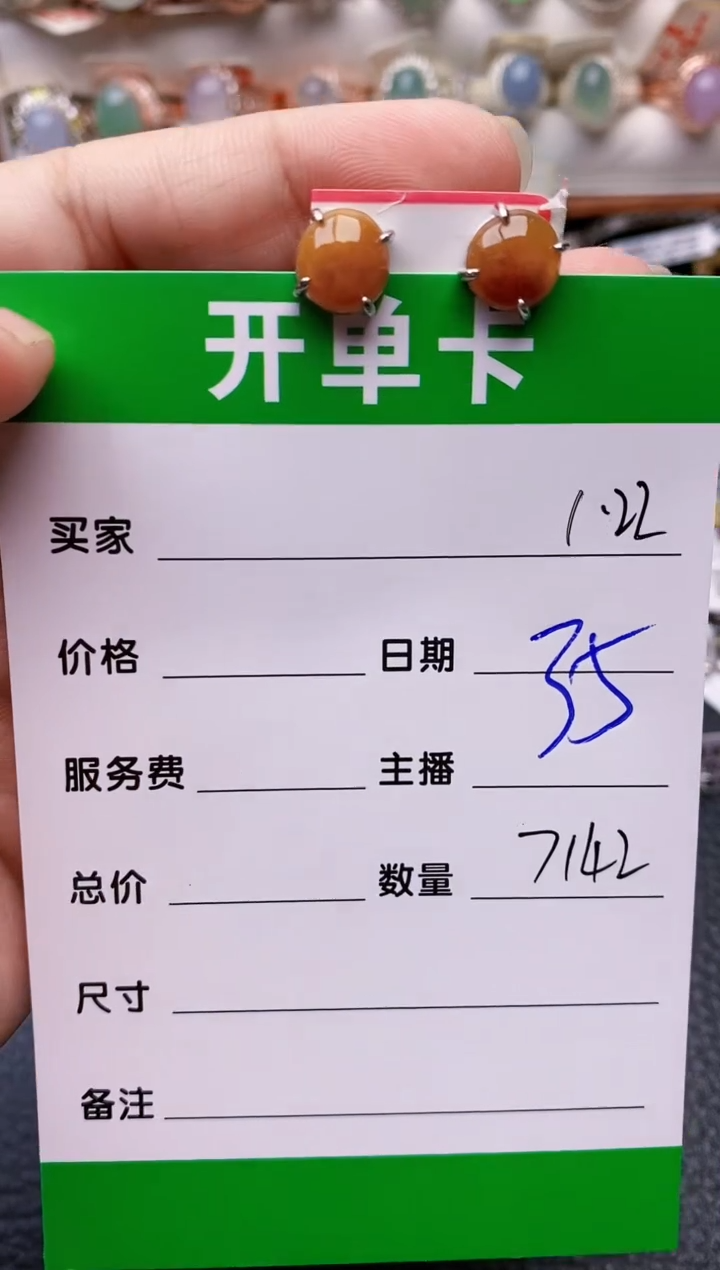 开单卡
买家 1.22
价格 日期 35
服务费 主播
总价 数量 7142
尺寸
备注